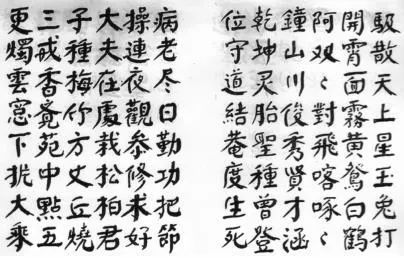 馭散天上星玉兔打
開霄面霧黃鶖白鶴
阿双〻對飛喀啄〻
鐘山川俊秀賢才涵
乾坤灵胎聖種曾登
位守道結菴度生死
病老尽日勤功把節
操連夜觀叅修求好
大夫在處栽松柏君
子種梅竹方丈丘燒
三戒香齋苑中點五
更燭雲窓下扰大乘